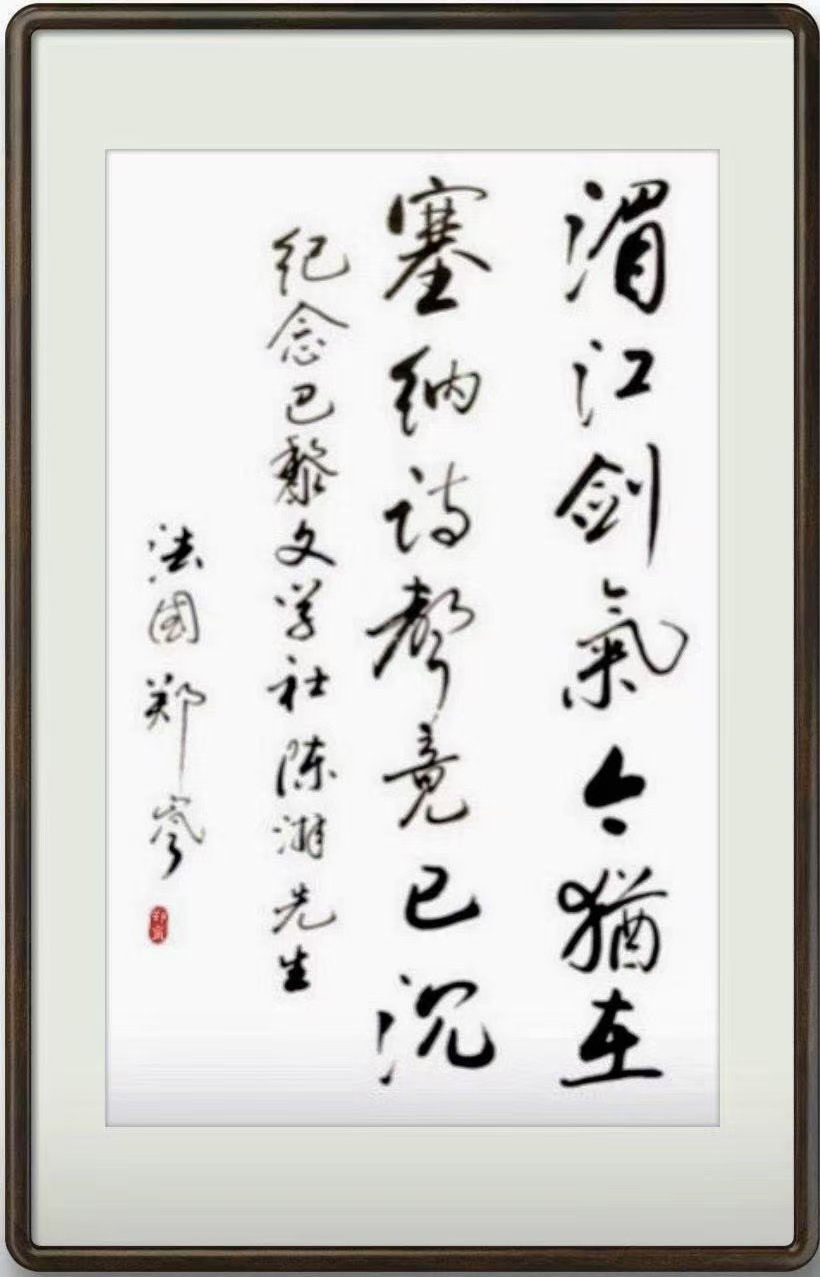 湄江剑氣今犹在
塞纳诗聲竟已沉
纪念巴黎文学社陈湃先生
法国郑